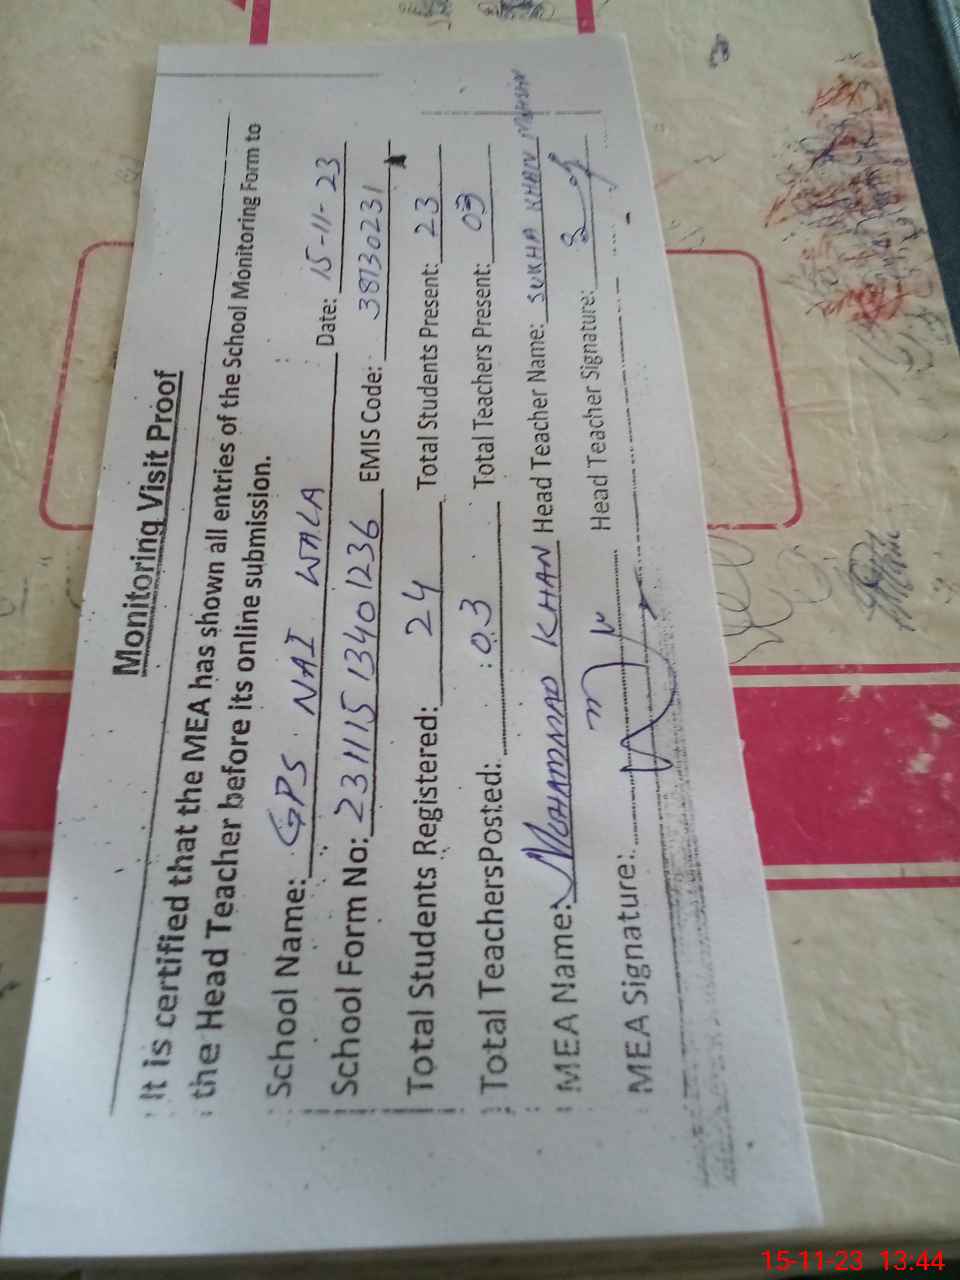 Monitoring Visit Proof
It is certified that the MEA has shown all entries of the School Monitoring Form to
the Head Teacher before its online submission.
School Name: GPS NAI WALA Date: 15-11-23
School Form No: 231115 13401236 EMIS Code: 38730231
Total Students Registered: 24 Total Students Present: 23
Total TeachersPosted: 03 Total Teachers Present: 03
MEA Name: MUHAMMAD KHAN Head Teacher Name: SUKHA KHAN
MEA Signature: Head Teacher Signature:
15-11-23 13:44